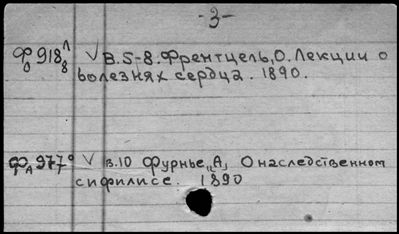 -3-
Ф 918 л/8 √ В.5-8. Френтцель, О. Лекции о
болезнях сердца. 1890.
Ф 977 √ в.10 Фурнье, А. О наследственном
сифилисе. 1890